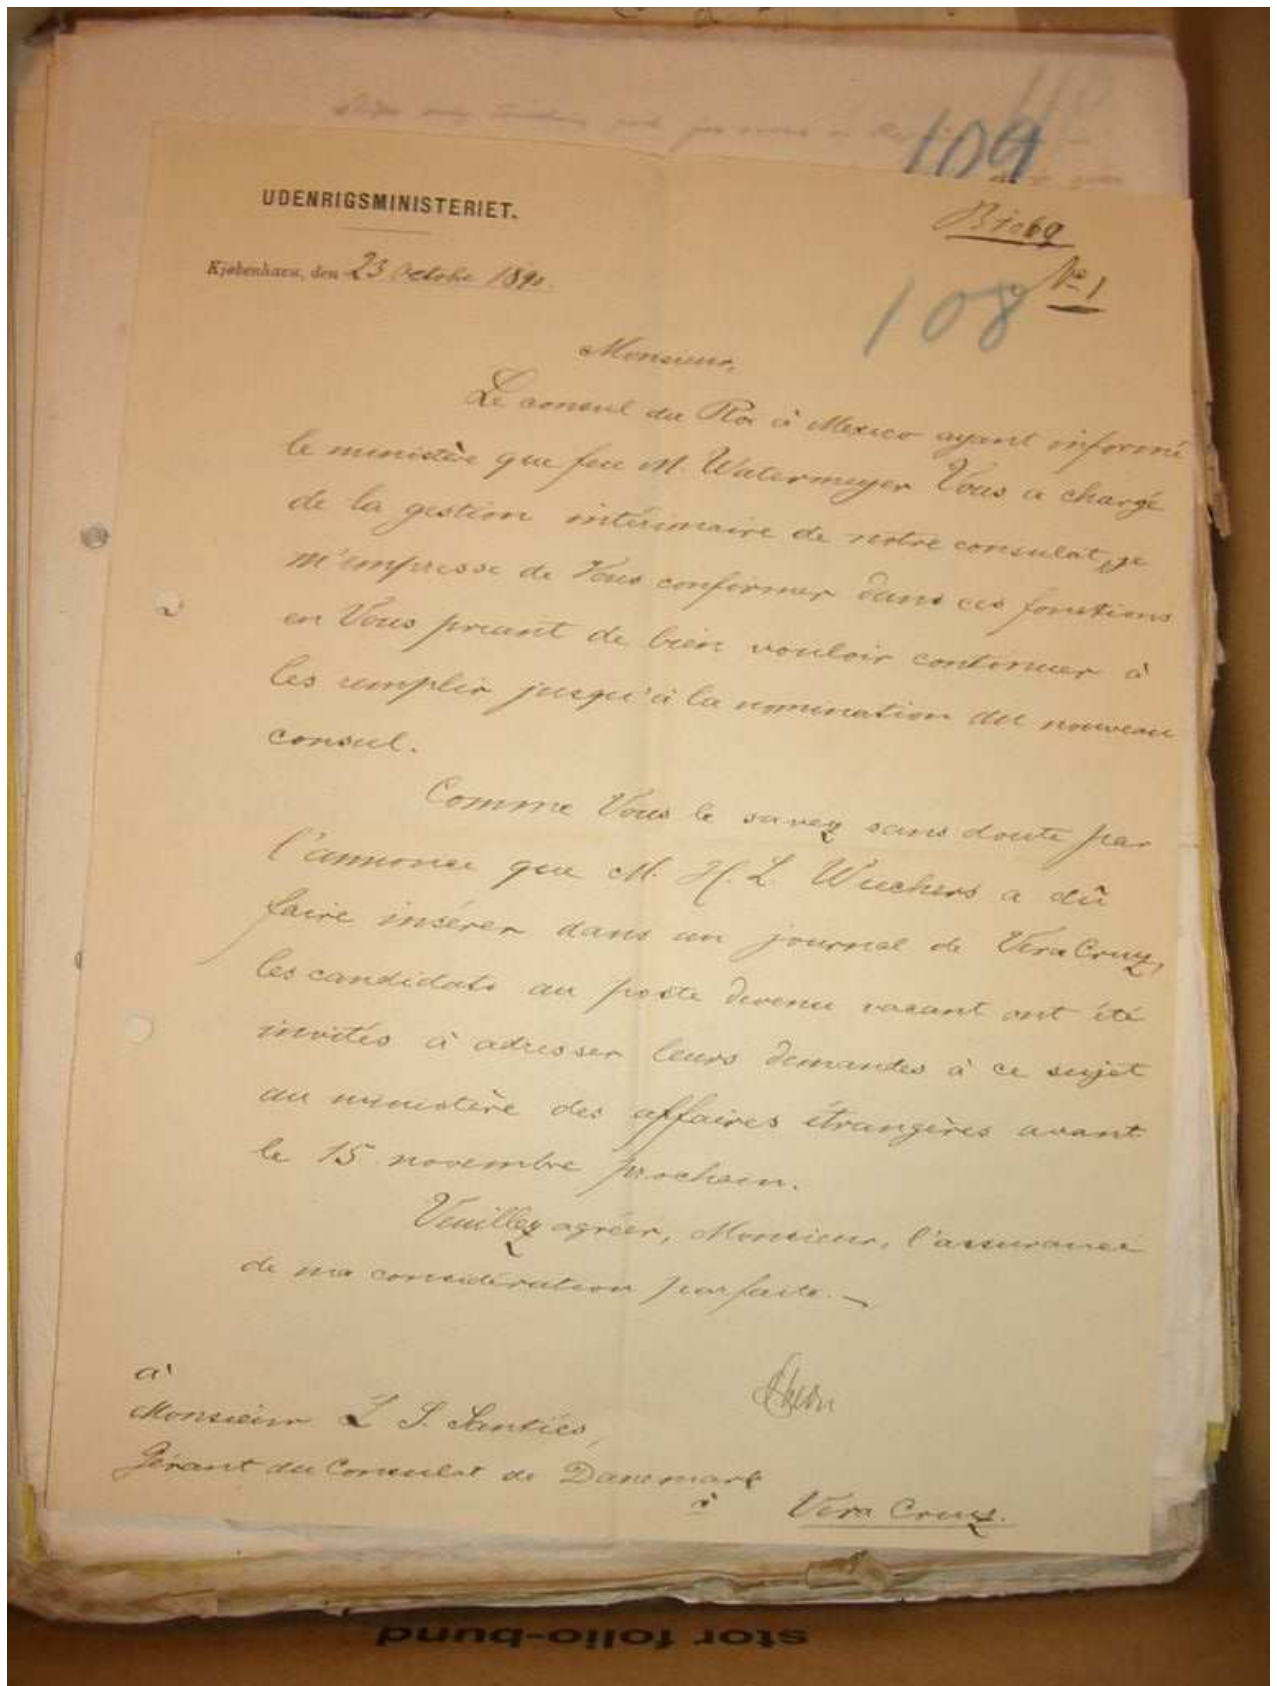 109
UDENRIGSMINISTERIET.
Kjøbenhavn, den 23 Octobre 1890.
No 1
108
Monsieur,
Le consul du Roi à Mexico ayant informé
le ministère que feu M. Watermeyer Vous a chargé
de la gestion intérimaire de notre consulat, je
m'empresse de Vous confirmer dans ces fonctions
en Vous priant de bien vouloir continuer à
les remplir jusqu'à la nomination du nouveau
consul.
Comme Vous le savez sans doute par
l'annonce que M. H. L. Wiechers a dû
faire insérer dans un journal de Vera Cruz,
les candidats au poste devenu vacant ont été
invités à adresser leurs demandes à ce sujet
au ministère des affaires étrangères avant
le 15 novembre prochain.
Veuillez agréer, Monsieur, l'assurance
de ma considération parfaite.
à
Monsieur L S.
Gérant du Consulat de Danemark
à Vera Cruz.
stor folio-bund